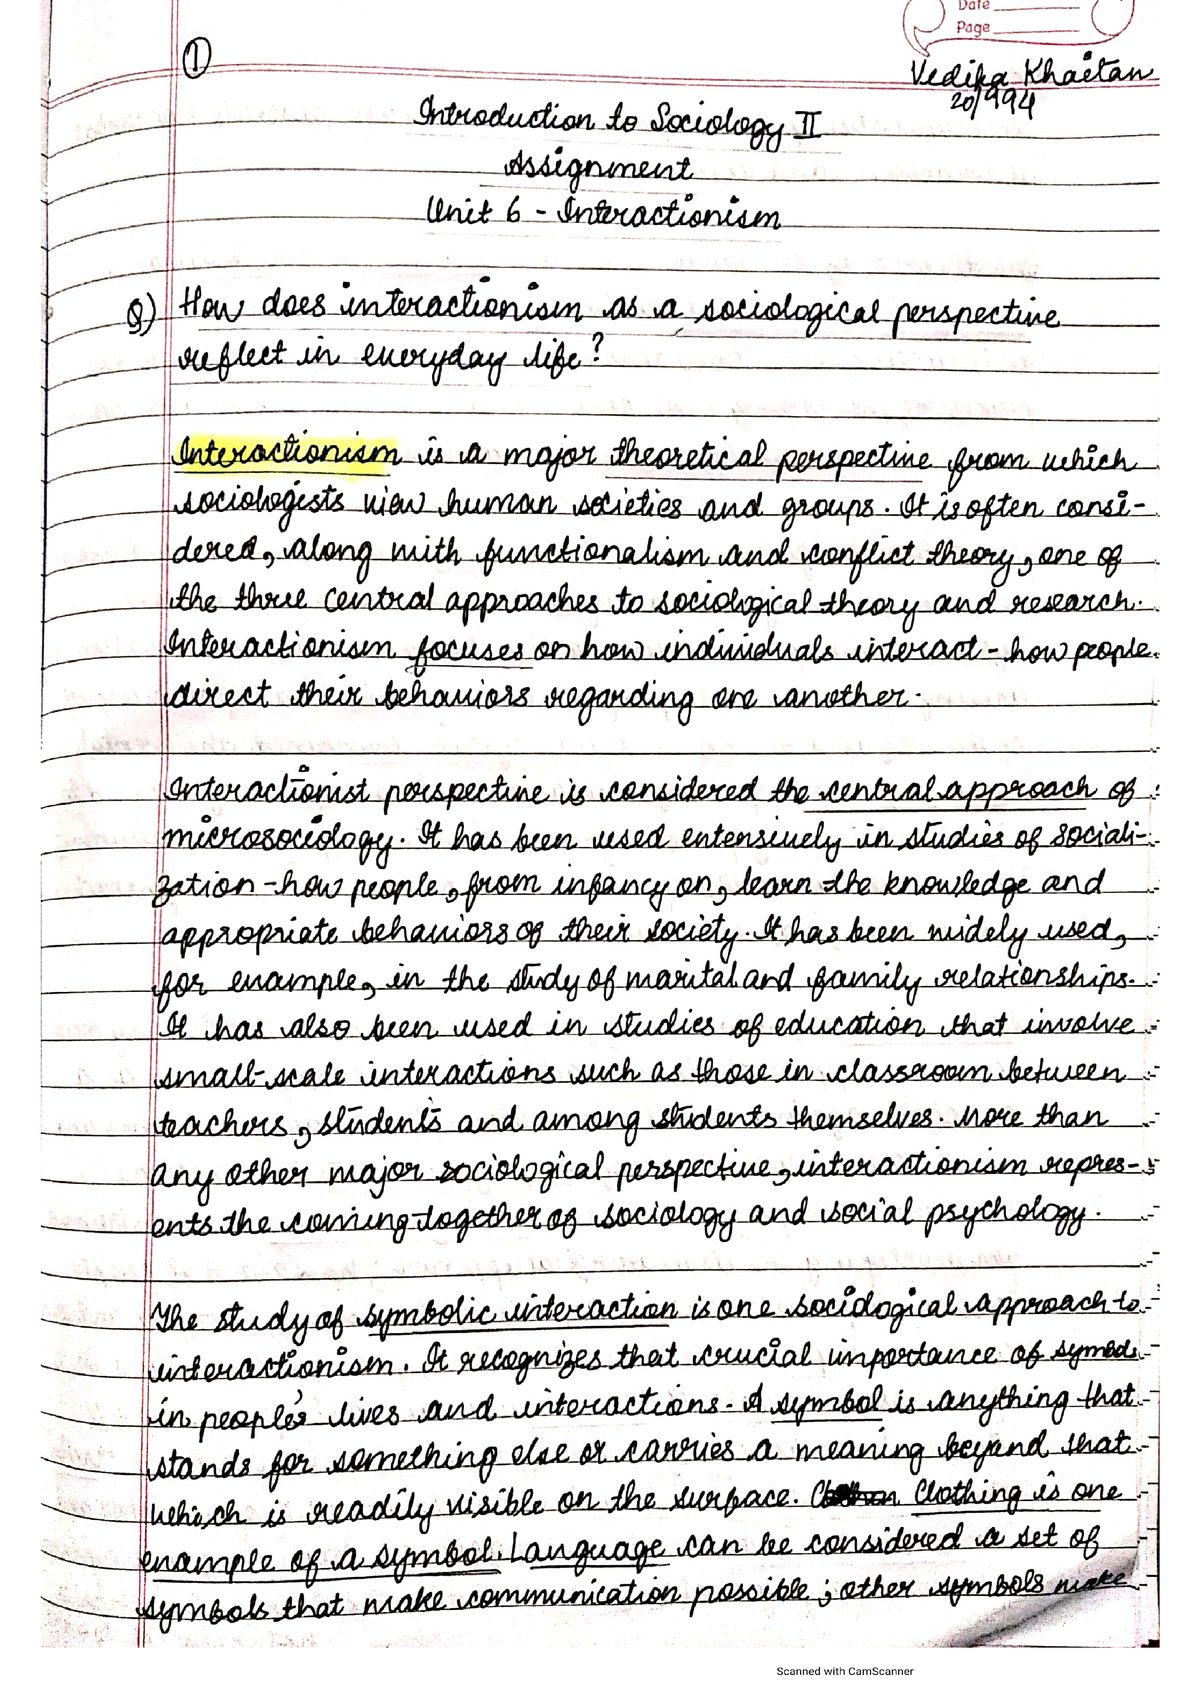 Date
Page
①
Vedika Khaitan
20/994
Introduction to Sociology II
Assignment
Unit 6 - Interactionism
Q) How does interactionism as a sociological perspective
reflect in everyday life?
Interactionism is a major theoretical perspective from which
sociologists view human societies and groups. It is often consi-
dered, along with functionalism and conflict theory, one of
the three central approaches to sociological theory and research.
Interactionism focuses on how individuals interact - how people
direct their behaviors regarding one another.
Interactionist perspective is considered the central approach of
microsociology. It has been used extensively in studies of sociali-
zation - how people, from infancy on, learn the knowledge and
appropriate behaviors of their society. It has been widely used,
for example, in the study of marital and family relationships.
It has also been used in studies of education that involve
small-scale interactions such as those in classroom between
teachers, students and among students themselves. More than
any other major sociological perspective, interactionism repres-
ents the coming together of sociology and social psychology.
The study of symbolic interaction is one sociological approach to
interactionism. It recognizes that crucial importance of symbols
in people's lives and interactions. A symbol is anything that
stands for something else or carries a meaning beyond that
which is readily visible on the surface. Clothing is one
example of a symbol. Language can be considered a set of
symbols that make communication possible; other symbols make
Scanned with CamScanner